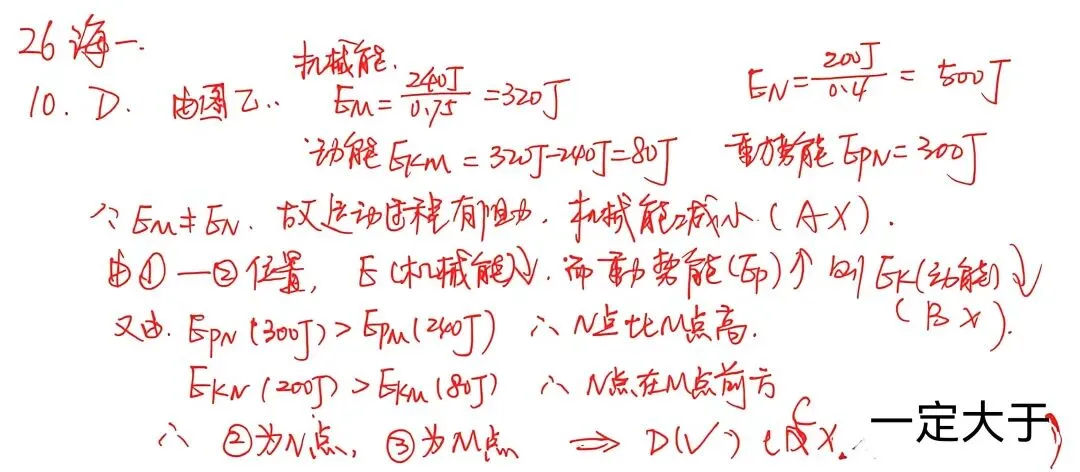 26海一.
10. D. 由图乙.. 机械能. E_M = 240J/0.75 = 320J E_N = 200J/0.4 = 500J
动能 E_KM = 320J-240J=80J 重力势能 E_PN = 300J
∵ E_M ≠ E_N. 故运动过程有阻力. 机械能减小 (A×).
由①—②位置, E(机械能)↓. 而重力势能(E_P)↑ 则 E_K(动能)↓ (B×).
又由. E_PN (300J) > E_PM (240J) ∴ N点比M点高.
E_KN (200J) > E_KM (80J) ∴ N点在M点前方
∴ ②为N点, ③为M点 ⇒ D(√) C ×. 一定大于